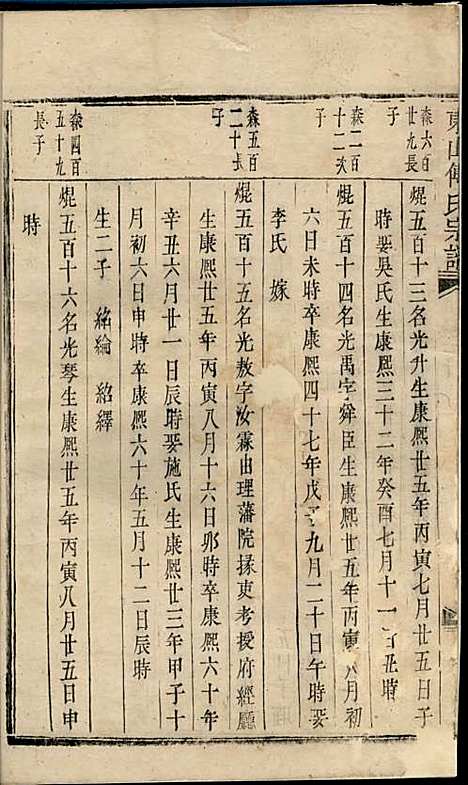 東山傅氏宗譜
森六百
廿九長
子
焜五百十三名光升生康熙廿五年丙寅七月廿五日子
時娶吳氏生康熙三十二年癸酉七月十一日丑時
森二百
十二次
子
焜五百十四名光禹字舜臣生康熙廿五年丙寅八月初
六日未時卒康熙四十七年戊子九月二十日午時娶
李氏 嫁
森五百
二十長
子
焜五百十五名光赦字汝霖由理藩院掾吏考授府經廳
生康熙廿五年丙寅八月十六日卯時卒康熙六十年
辛丑六月廿一日辰時娶施氏生康熙廿三年甲子十
月初六日申時卒康熙六十年五月十二日辰時
生二子 紹綸 紹繹
森四百
五十九
長子
焜五百十六名光琴生康熙廿五年丙寅八月廿五日申
時